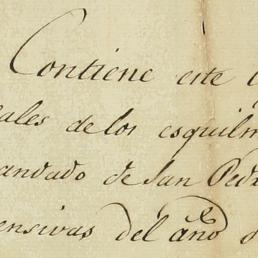 Contiene este
ales de los esquilm
andado de San Ped
ensivas del año